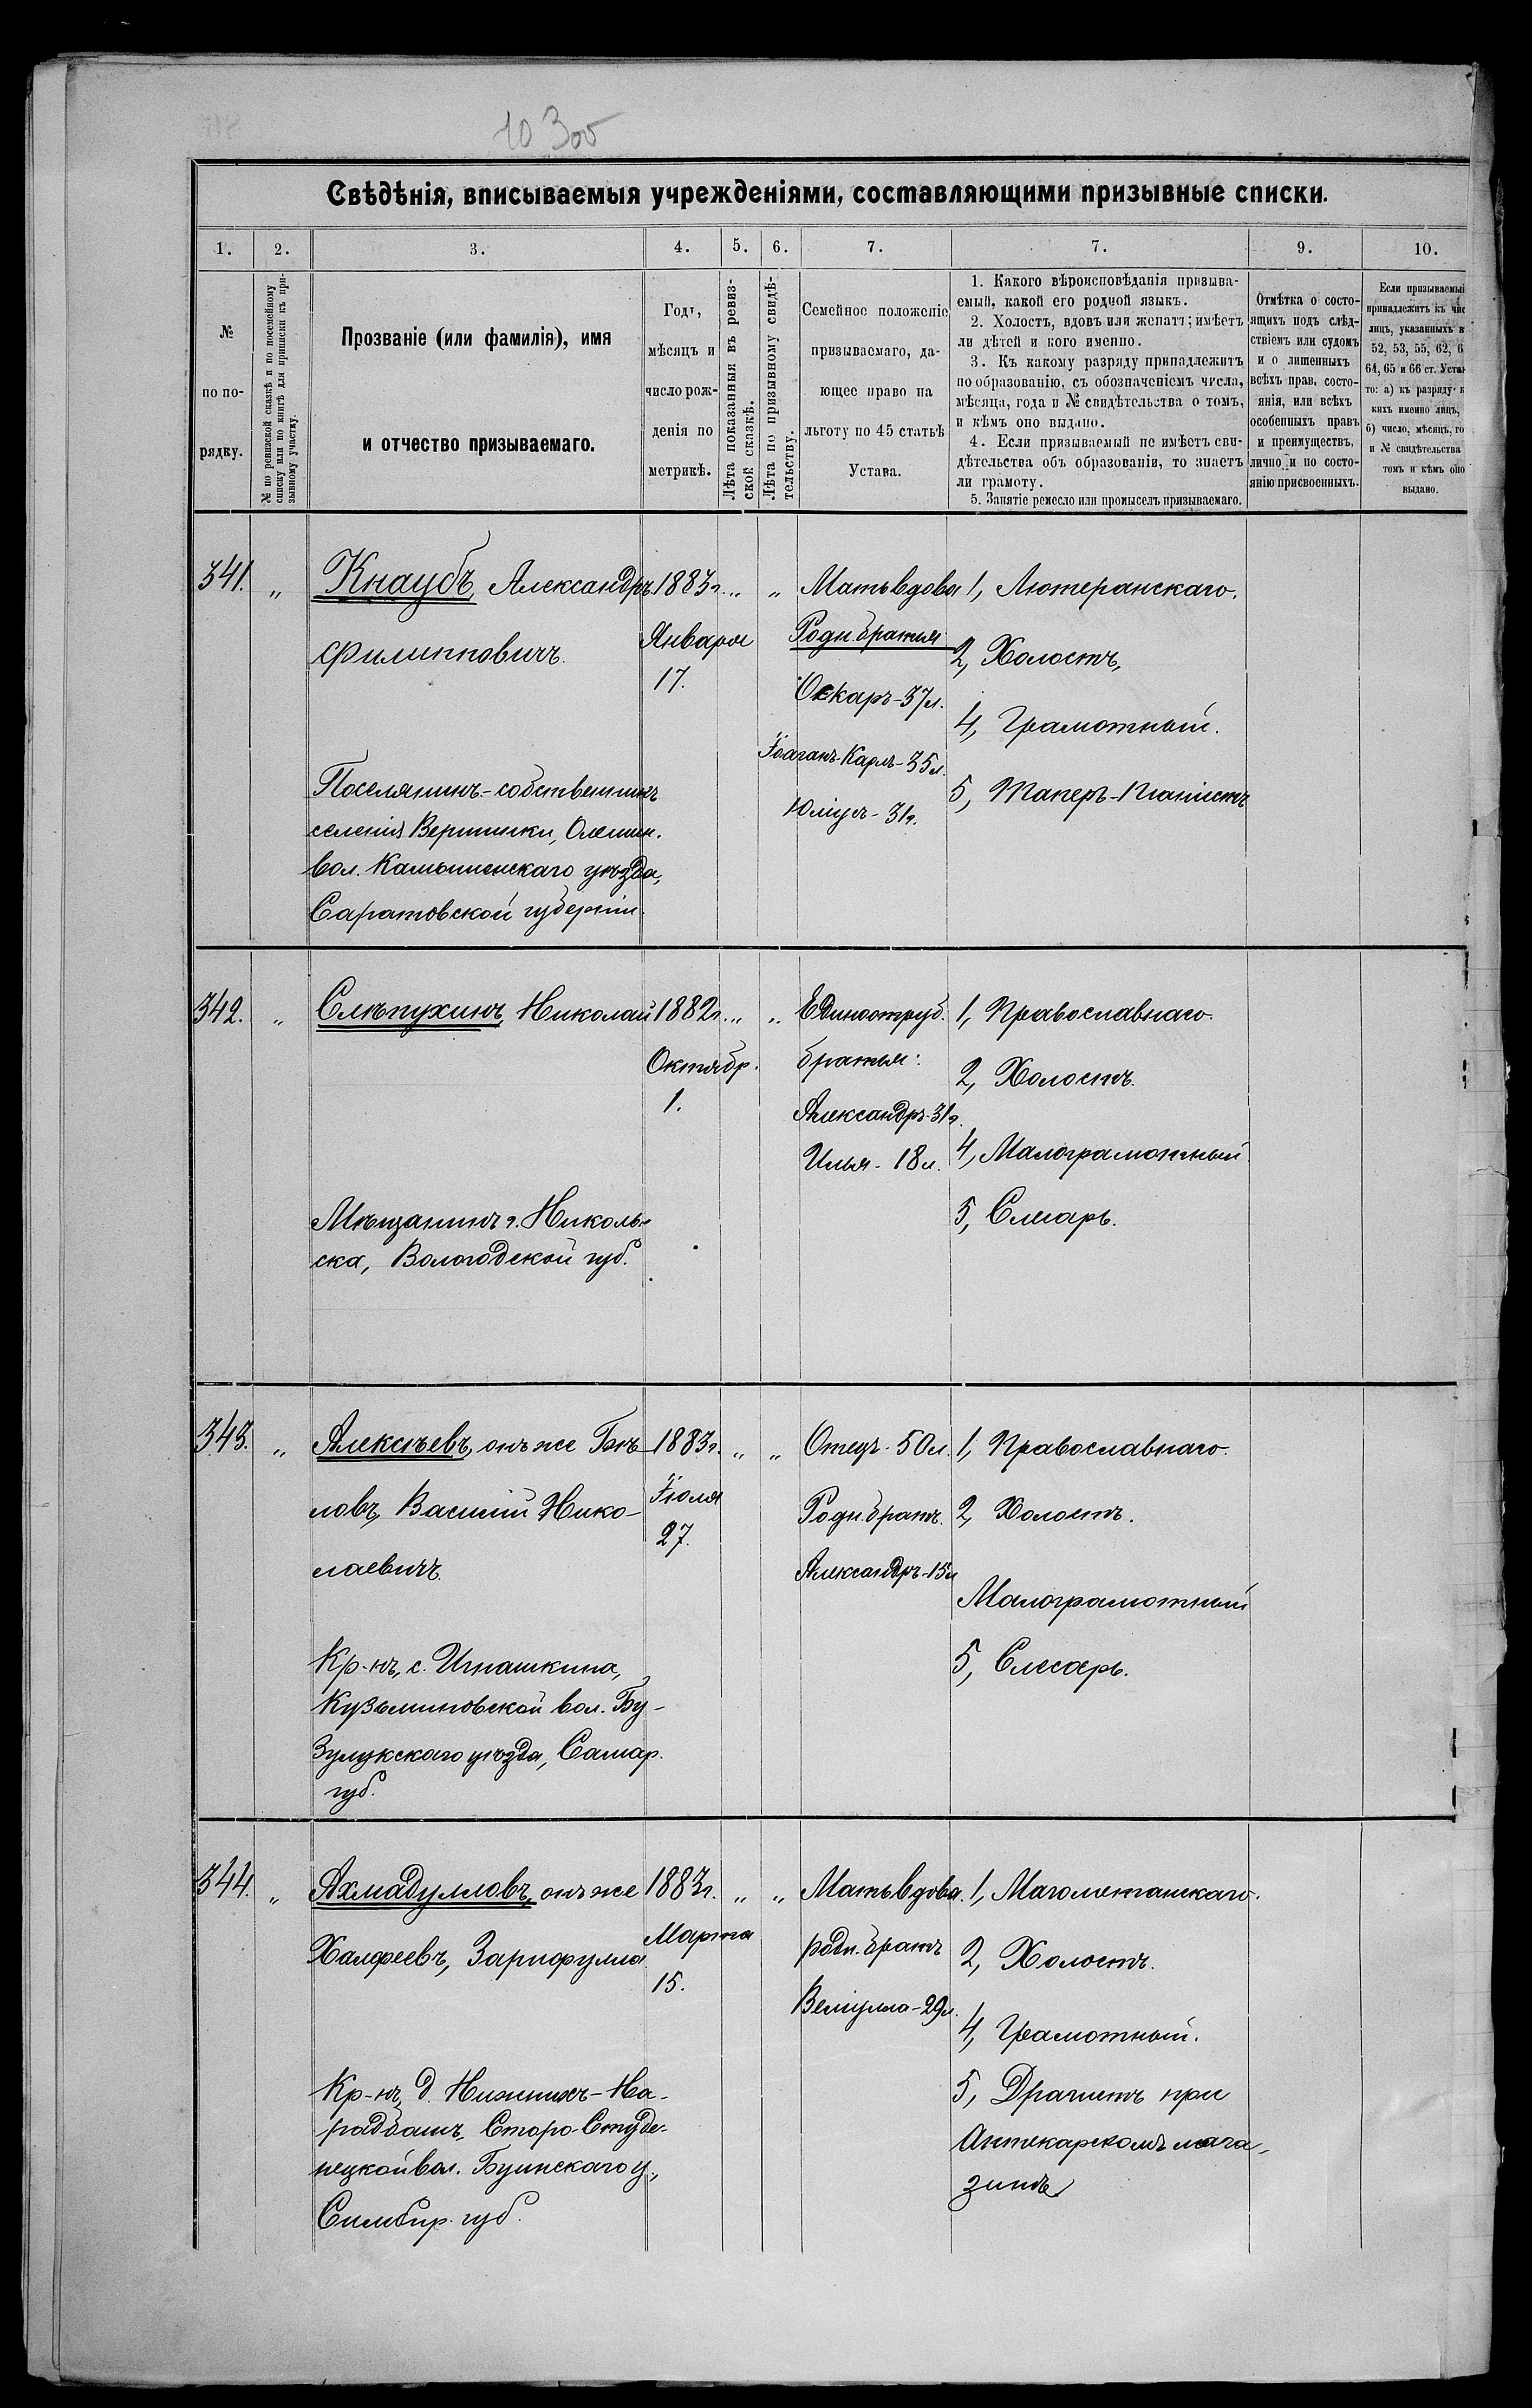 10 300
Свѣдѣнія, вписываемыя учрежденіями, составляющими призывные списки.
1. 2. 3. 4. 5. 6. 7. 7. 9. 10.
№
по по-
рядку.
№ по ревизской сказкѣ и по посемейному
списку или по книгѣ для приписки къ при-
зывному участку.
Прозваніе (или фамилія), имя
и отчество призываемаго.
Годъ,
мѣсяцъ и
число рож-
денія по
метрикѣ.
Лѣта показанныя въ ревиз-
ской сказкѣ.
Лѣта по призывному свидѣ-
тельству.
Семейное положеніе
призываемаго, да-
ющее право на
льготу по 45 статьѣ
Устава.
1. Какого вѣроисповѣданія призыва-
емый, какой его родной языкъ.
2. Холостъ, вдовъ или женатъ; имѣетъ
ли дѣтей и кого именно.
3. Къ какому разряду принадлежитъ
по образованію, съ обозначеніемъ числа,
мѣсяца, года и № свидѣтельства о томъ,
и кѣмъ оно выдано.
4. Если призываемый не имѣетъ сви-
дѣтельства объ образованіи, то знаетъ
ли грамоту.
5. Занятіе ремесло или промыселъ призываемаго.
Отмѣтка о состо-
ящихъ подъ слѣд-
ствіемъ или судомъ
и о лишенныхъ
всѣхъ прав, состо-
янія, или всѣхъ
особенныхъ правъ
и преимуществъ,
лично и по состо-
янію присвоенныхъ.
Если призываемый
принадлежитъ къ чис
лицъ, указанныхъ в
52, 53, 55, 62, 6
64, 65 и 66 ст. Устав
то: а) къ разряду к
кихъ именно лицъ,
б) число, мѣсяцъ, го
и № свидѣтельства
томъ и кѣмъ оно
выдано.
341. „ Кнаубъ, Александръ
Филипповичъ.
Поселянинъ-собственникъ
селенія Вершинки, Олешин.
вол. Камышенскаго уѣзда,
Саратовской губерніи.
1883г. „ „
Января
17.
Мать вдова
Родн. братья
Оскаръ-37л.
Іоаганъ-Карлъ-35л.
Юліусъ-31г.
1, Лютеранскаго.
2, Холостъ,
4, Грамотный.
5, Таперъ-піанистъ
342. „ Слѣпухинъ, Николай
Мѣщанинъ г. Николь-
ска, Вологодской губ.
1882г. „ „
Октябр.
1.
Единоутроб.
братья:
Александръ-31г.
Илья-18л.
1, Православнаго.
2, Холостъ.
4, Малограмотный
5, Слесарь.
343. „ Алексѣевъ, онъ же Бѣ-
ловъ, Василій Нико-
лаевичъ.
Кр-нъ, с. Игнашкина,
Кузьминовской вол. Бу-
зулукскаго уѣзда, Самар.
губ.
1883г. „ „
Іюля
27.
Отецъ-50л.
Родн. братъ.
Александръ-15л
1, Православнаго.
2, Холостъ.
Малограмотный
5, Слесарь.
344. „ Ахмадулловъ, онъ же
Халфеевъ, Зарифулла
Кр-нъ, д. Нижнихъ-На-
радбашъ, Старо-Студе-
нецкой вол. Буинскаго у.,
Симбир. губ.
1883г. „ „
Марта
15.
Мать вдова.
родн. братъ
Веліулла-29л.
1, Магометанскаго.
2, Холостъ.
4, Грамотный.
5, Драгистъ при
Аптекарскомъ мага-
зинѣ